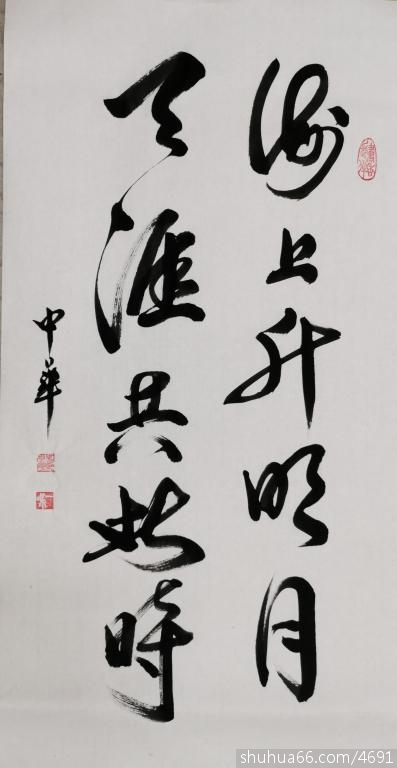 海上升明月
天涯共此时
中华
shuhua66.com/4691